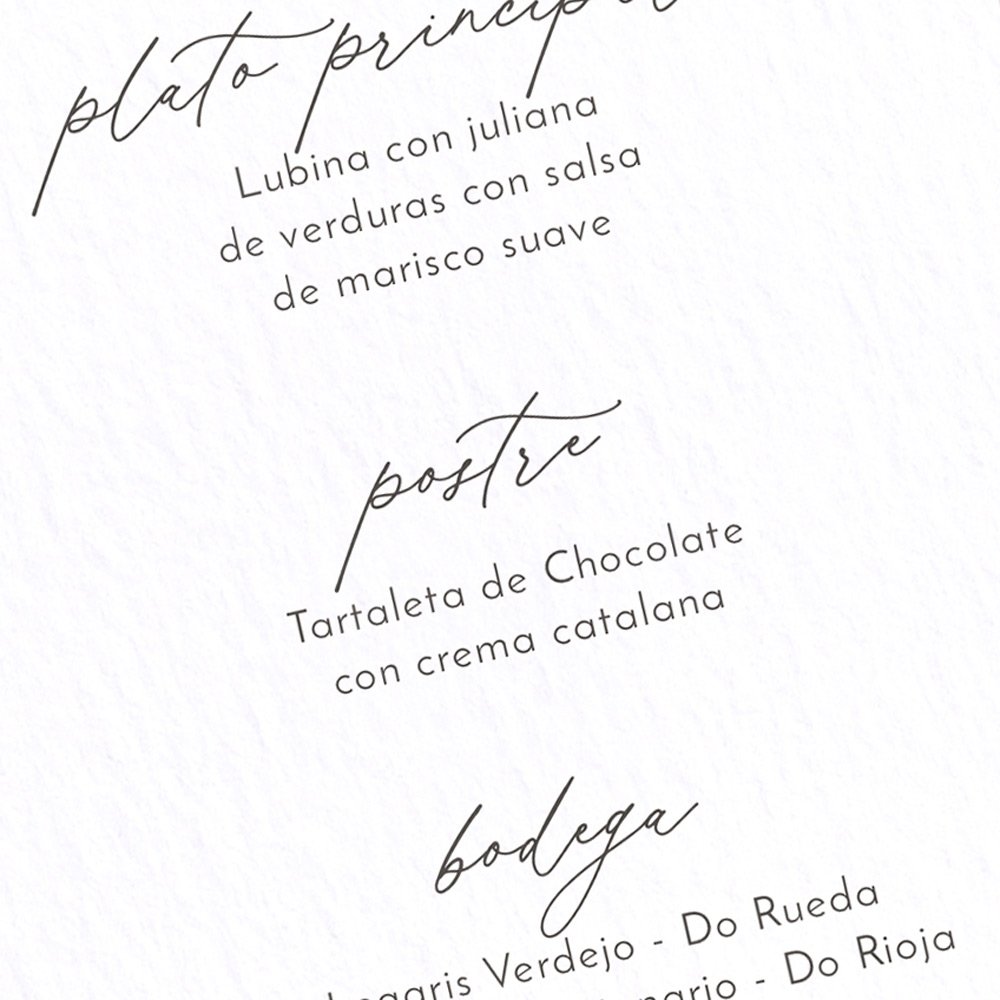 plato principal
Lubina con juliana
de verduras con salsa
de marisco suave
postre
Tartaleta de Chocolate
con crema catalana
bodega
Verdejo - Do Rueda
- Do Rioja